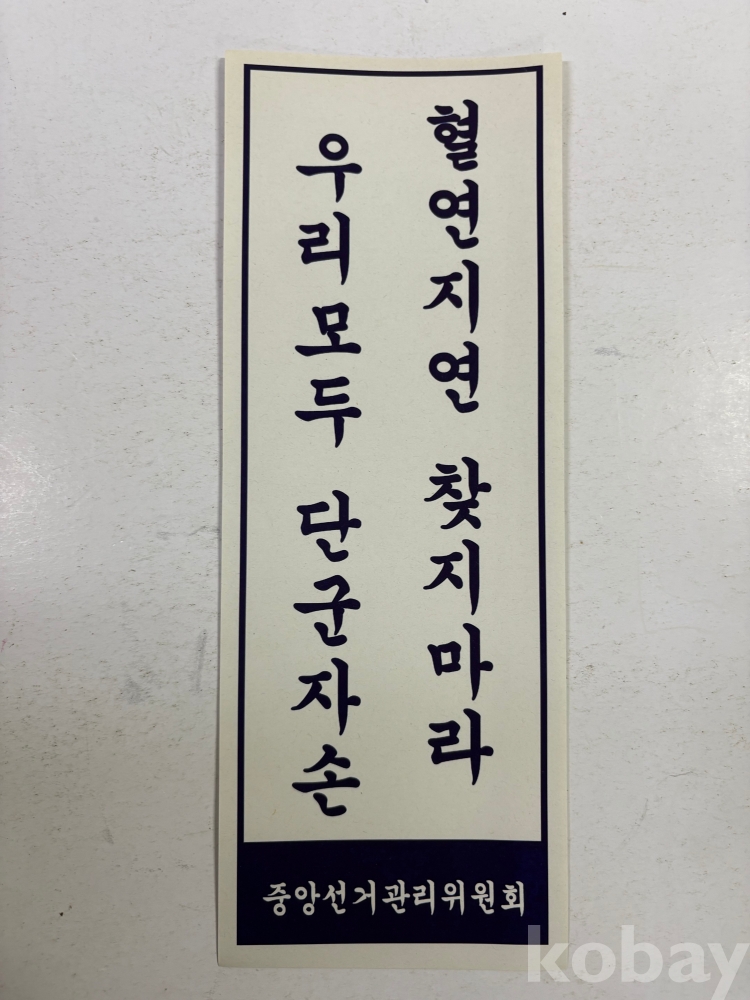 혈연지연 찾지마라
우리모두 단군자손
중앙선거관리위원회
kobay